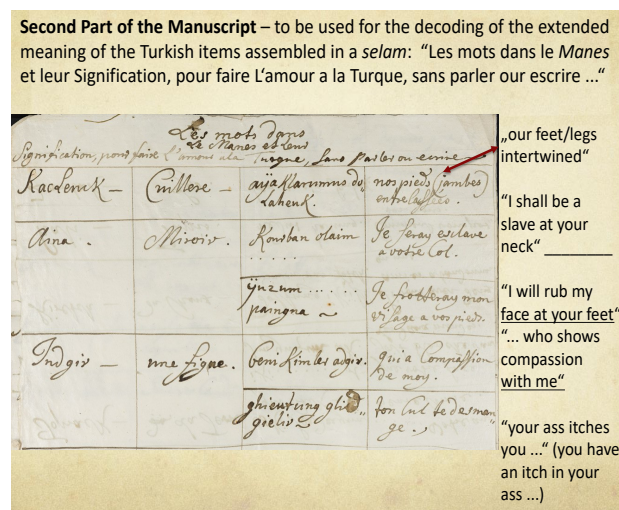 Second Part of the Manuscript – to be used for the decoding of the extended
meaning of the Turkish items assembled in a selam: “Les mots dans le Manes
et leur Signification, pour faire L‘amour a la Turque, sans parler our escrire ...“
Les mots dans
Le Manes et Leur
Signification, pour faire L'amour a la Turque, Sans Parler ou ecrire
Kaclenik – Cuillere – aijaklarumus do, nos pieds (jambes)
Lahenk. entrelassees.
Aina . Miroir . Kourban olaim Je seray esclave
. . . . . a votre Col.
ijuzum ...... Je frotteray mon
paingna visage a vos pieds.
Indgir – une figue . beni Kimler adgir. qui a Compassion
de moy.
ghieutung ton Cul te desman,,
gielir ge .
„our feet/legs
intertwined“
"I shall be a
slave at your
neck“ ________
“I will rub my
face at your feet“
“... who shows
compassion
with me“
“your ass itches
you ...“ (you have
an itch in your
ass ...)